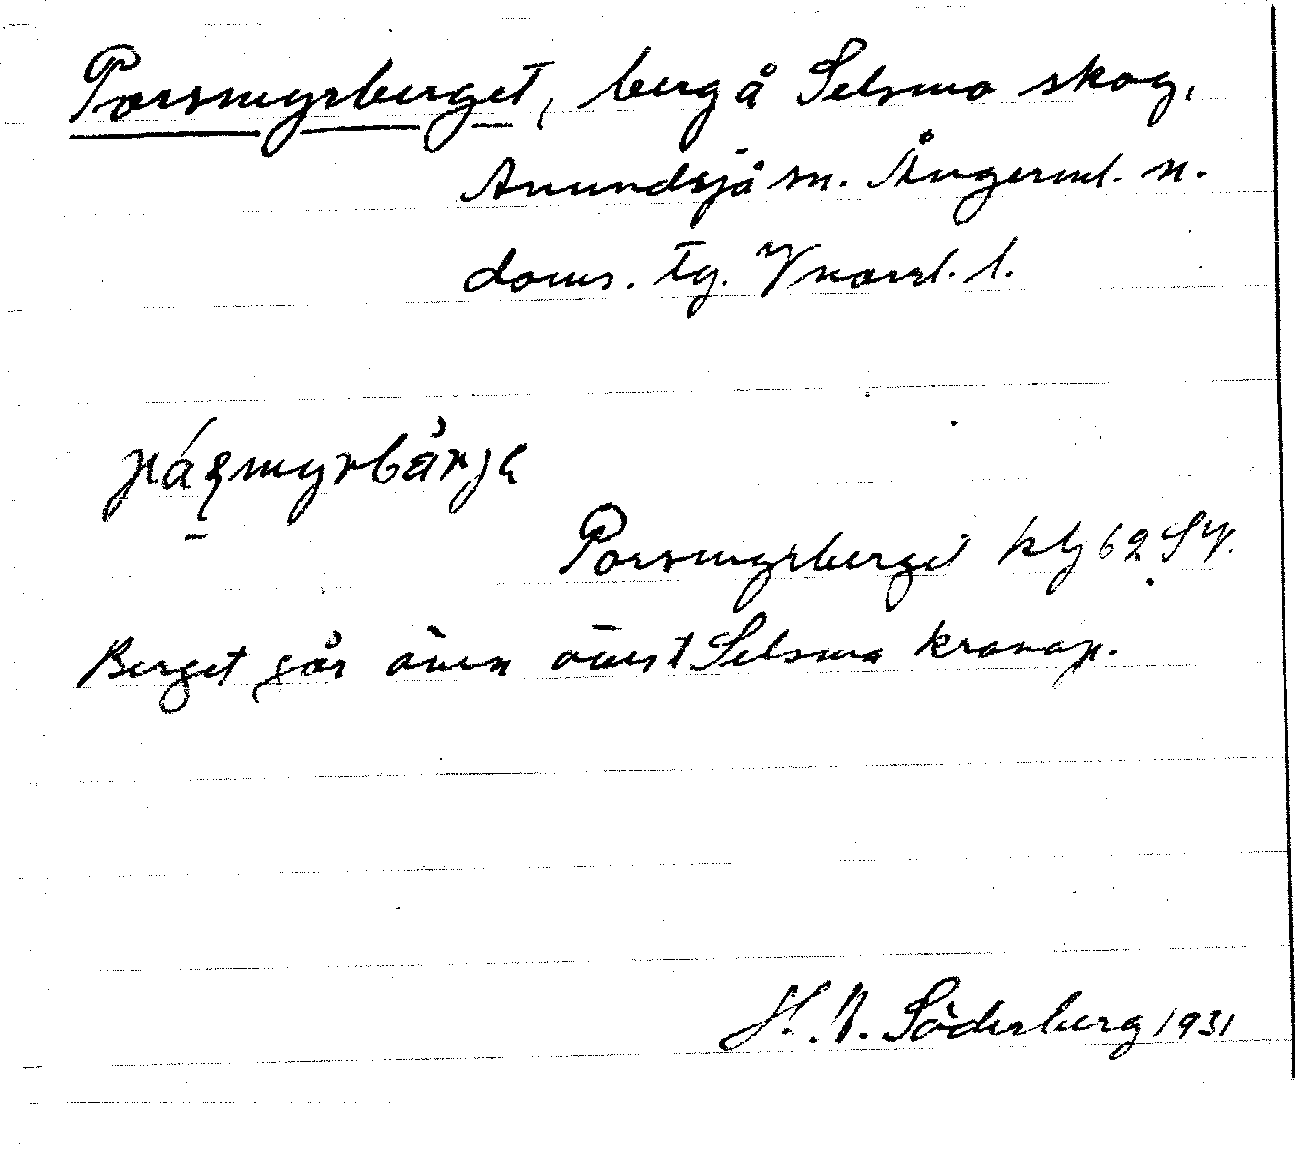 Porsmyrberget, berg å Selsmo skog,
Anundsjö sn. Ångerml. n.
doms. tg. Vnorrl. l.
Porsmyrberget kbl 62 SV.
Berget går även över t Selsmo kronop.
H. N. Söderberg 1931